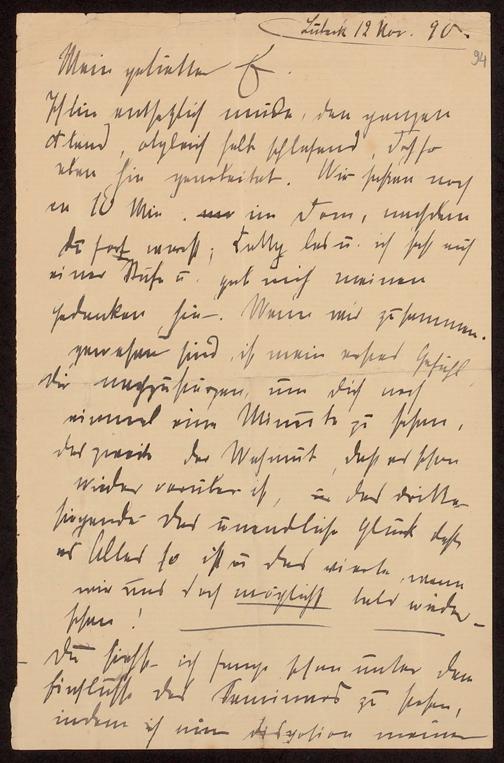 Lübeck 12 Nov. 90.
94
Mein geliebter
Ich bin entsetzlich müde, den ganzen
Abend, obgleich halb schlafend,
eben hin gearbeitet. Wir saßen noch
10 Min. im Dom, nachdem
Du fort warst; las u. ich saß auf
einer Stufe u. gab mich meinen
Gedanken hin. Wenn wir zusammen
gewesen sind, ist mein erstes Gefühl,
Dir nachzuspringen, um Dich noch
einmal eine Minute zu sehen,
das zweite der Wehmut, daß es schon
wieder vorüber ist, u. das dritte
siegende das unendliche Glück daß
es Alles so ist u das vierte, wenn
wir uns doch möglichst bald wieder-
sehen!
Du siehst ich fange schon unter dem
Einflusse des Seminars zu stehen,
indem ich eine Disposition meiner